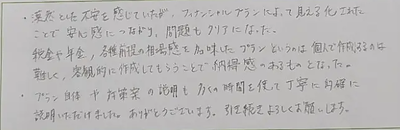 ・漠然とした不安を感じていたが、フィナンシャルプランによって見える化された
ことで安心感につながり、問題もクリアになった。
税金や年金、各種前提の相場感を加味したプランというのは個人で作成するのは
難しく、客観的に作成してもらうことで納得感のあるものとなった。
・プラン自体や対策案の説明も多くの時間を使って丁寧に的確に
説明いただけました。ありがとうございます。引き続きよろしくお願いします。